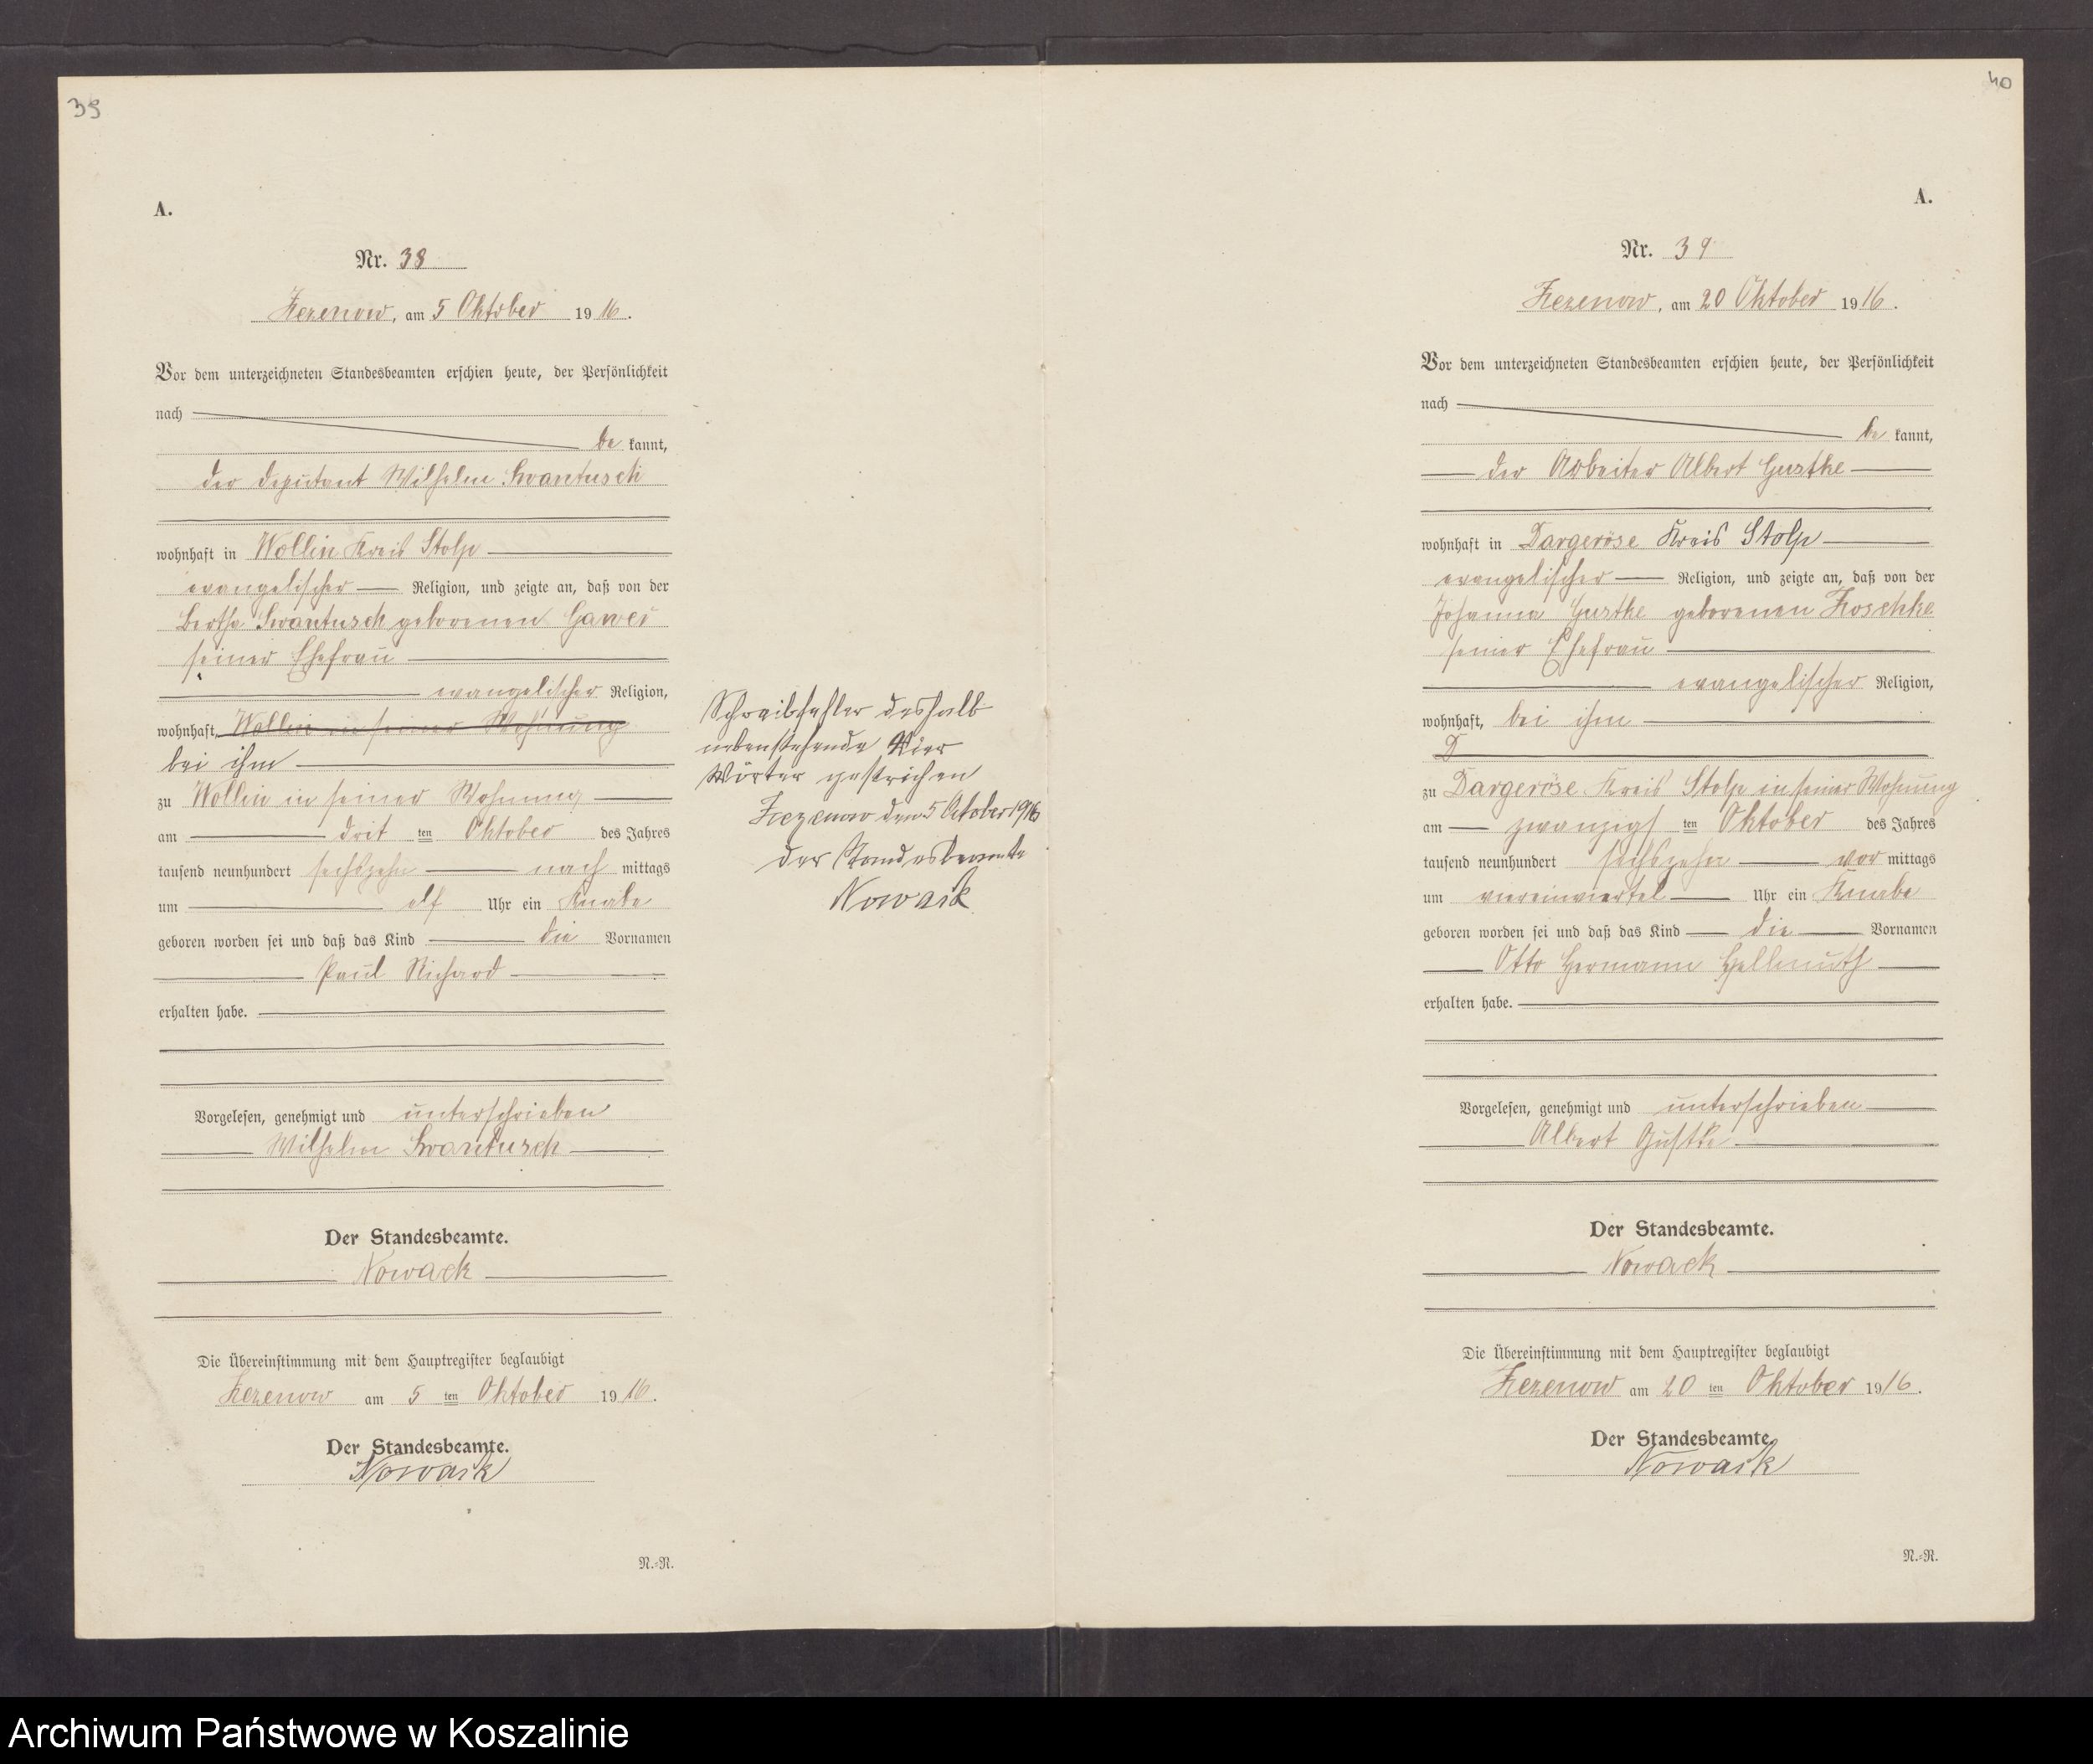 39
A.
Nr. 38
Zezenow, am 5 Oktober 1916.
Vor dem unterzeichneten Standesbeamten erschien heute, der Persönlichkeit
nach
be kannt,
der Deputant Wilhelm Swantusch
wohnhaft in Wollin Kreis Stolp
evangelischer Religion, und zeigte an, daß von der
Bertha Swantusch geborenen
seiner Ehefrau
evangelischer Religion,
wohnhaft, Wollin in seiner Wohnung
bei ihm
zu Wollin in seiner Wohnung
am drit ten Oktober des Jahres
tausend neunhundert sechszehn nach mittags
um elf Uhr ein Knabe
geboren worden sei und daß das Kind die Vornamen
Paul Richard
erhalten habe.
Vorgelesen, genehmigt und unterschrieben
Wilhelm Swantusch
Der Standesbeamte.
Nowack
Die Übereinstimmung mit dem Hauptregister beglaubigt
Zezenow am 5 ten Oktober 1916.
Der Standesbeamte.
Nowack
N.=R.
Schreibfehler deshalb
nebenstehende Vier
Wörter gestrichen
Zezenow den 5 October 1916
Der Standesbeamte
Nowack
40
A.
Nr. 39
Zezenow, am 20 Oktober 1916.
Vor dem unterzeichneten Standesbeamten erschien heute, der Persönlichkeit
nach
be kannt,
der Arbeiter Albert Gustke
wohnhaft in Dargeröse Kreis Stolp
evangelischer Religion, und zeigte an, daß von der
Johanna Gustke geborenen Koschke
seiner Ehefrau
evangelischer Religion,
wohnhaft, bei ihm
D
zu Dargeröse Kreis Stolp in seiner Wohnung
am zwanzigs ten Oktober des Jahres
tausend neunhundert sechszehn vor mittags
um viereinviertel Uhr ein Knabe
geboren worden sei und daß das Kind die Vornamen
Otto Hermann Hellmuth
erhalten habe.
Vorgelesen, genehmigt und unterschrieben
Albert Gustke
Der Standesbeamte.
Nowack
Die Übereinstimmung mit dem Hauptregister beglaubigt
Zezenow am 20 ten Oktober 1916.
Der Standesbeamte.
Nowack
N.=R.
Archiwum Państwowe w Koszalinie